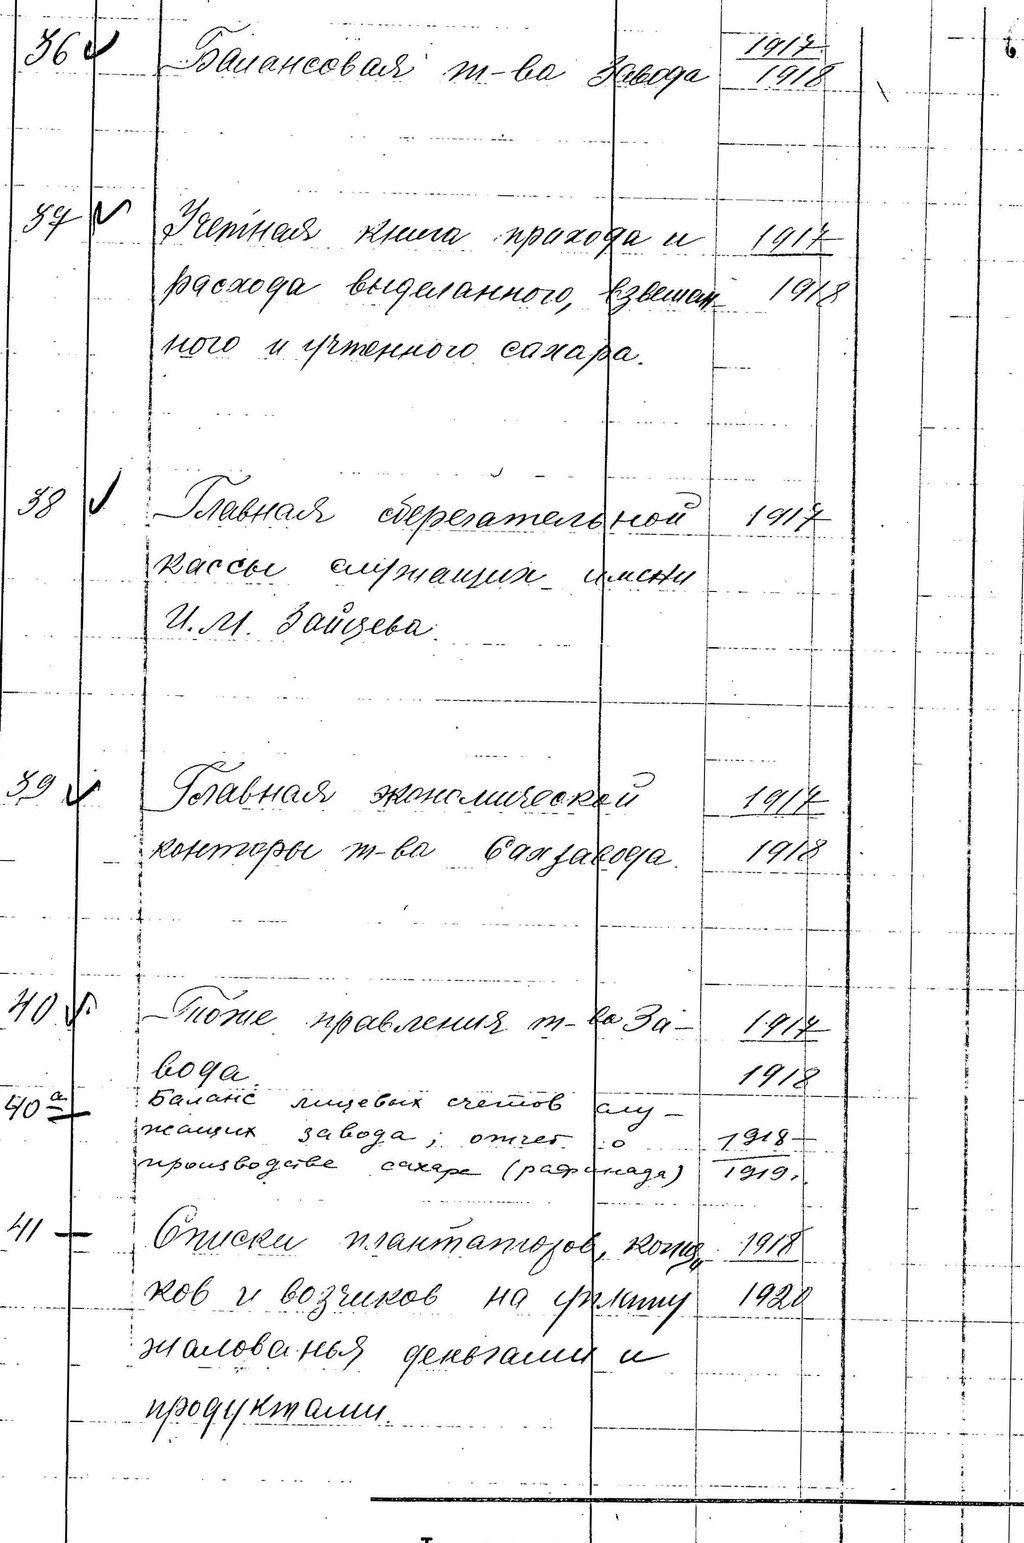 36 Балансовая т-ва Завода 1917
1918
37 Учетная книга прихода и 1917
расхода выделанного, взвешан- 1918
ного и учтенного сахара.
38 Главная сберегательной 1917
кассы служащих имени
И.М. Зайцева.
39 Главная экономической 1917
конторы т-ва Сахзавода. 1918
40 Тоже правления т-ва За- 1917
вода. 1918
40а Баланс лицевых счетов слу-
жащих завода; отчет о 1918-
производстве сахара (рафинада) 1919.
41 Списки плантаторов, 1918
ков и возчиков на уплату 1920
жалованья деньгами и
продуктами.